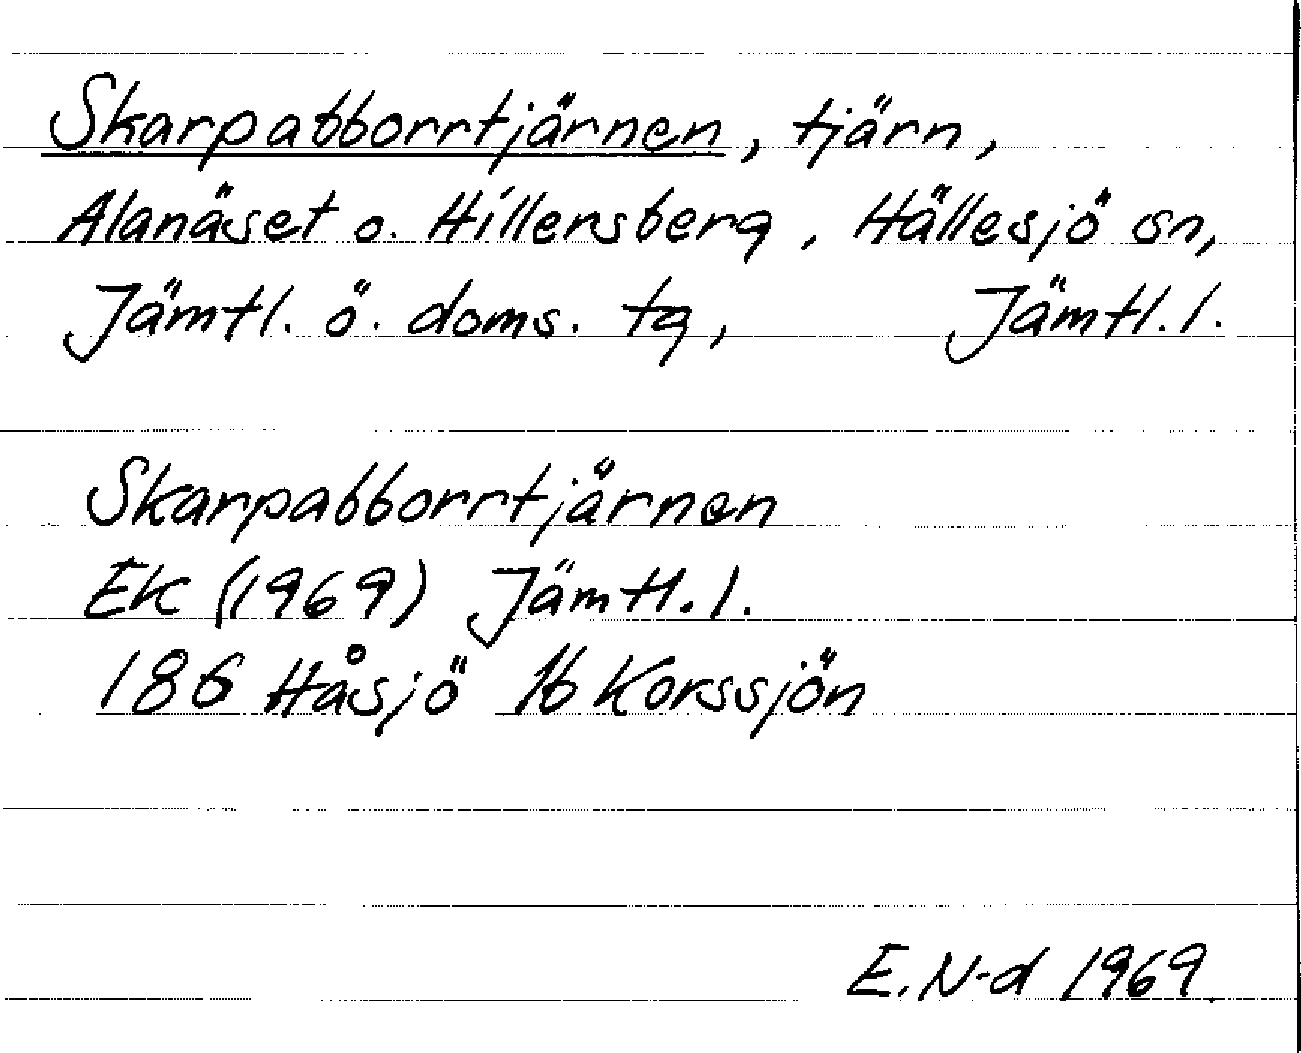 Skarpabborrtjärnen, tjärn,
Alanäset o. Hillensberg, Hällesjö sn,
Jämtl. ö. doms. tg, Jämtl. l.
Skarpabborrtjärnen
EK (1969) Jämtl. l.
18G Håsjö 1b Korssjön
E. N-d 1969.